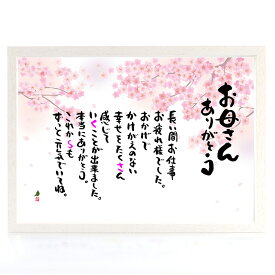 お母さん
ありがとう
長い間お仕事
お疲れ様でした。
おかげで
かけがえのない
幸せをたくさん
感じて
いくことが出来ました。
本当にありがとう。
これからも
ずっと元気でいてね。